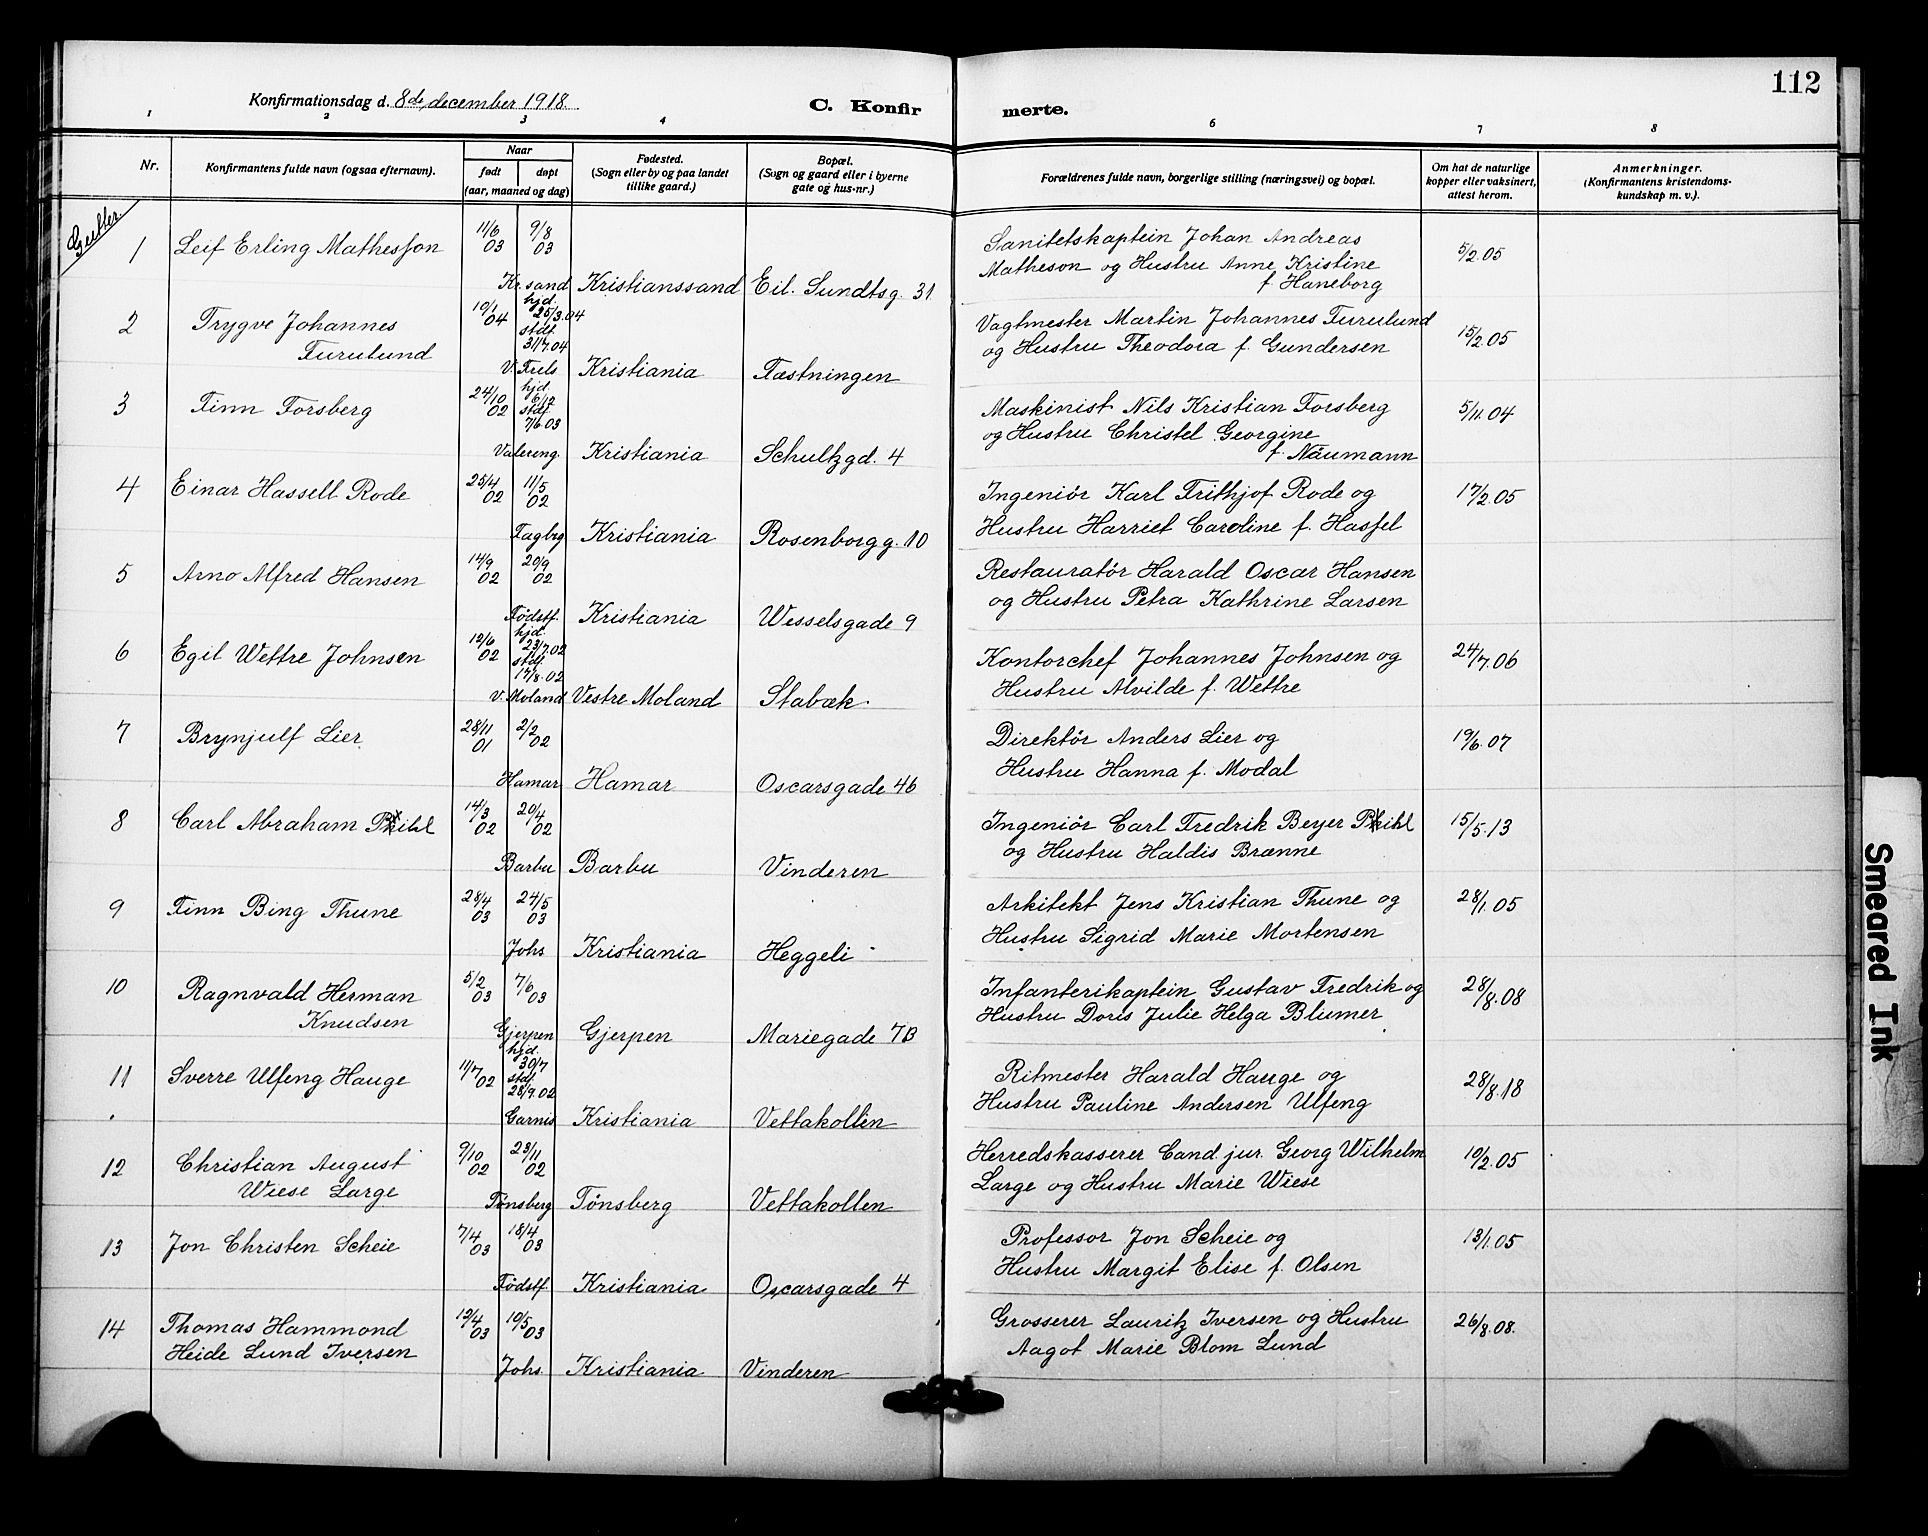 112
Konfirmationsdag d. 8de december 1918.
C. Konfir
merte.
1 2 3 4 6 7 8
Nr.
Konfirmantens fulde navn (ogsaa efternavn).
Naar
født døpt
(aar, maaned og dag)
Fødested.
(Sogn eller by og paa landet
tillike gaard.)
Bopæl.
(Sogn og gaard eller i byerne
gate og hus-nr.)
Forældrenes fulde navn, borgerlige stilling (næringsvei) og bopæl.
Om hat de naturlige
kopper eller vaksinert,
attest herom.
Anmerkninger.
(Konfirmantens kristendoms-
kundskap m. v.).
Gutter.
1 Leif Erling Mathesson 11/6 03 9/8 03
Kr.sand Kristianssand Eil. Sundtsg. 31
Sanitetskaptein Johan Andreas
Matheson og Hustru Anne Kristine
f Haneborg
5/2.05
2 Trygve Johannes
Furulund
10/1 04 hjd. 25/3.04
stdf. 31/7.04
V. Frels Kristiania Fæstningen
Vagtmester Martin Johannes Furulund
og Hustru Theodora f. Gundersen
15/2.05
3 Finn Forsberg 24/10 02 hjd. 6/12
stdf. 7/6.03
Valereng. Kristiania Schultzgd. 4
Maskinist Nils Kristian Forsberg
og Hustru Christel Georgine
f. Naumann
5/11.04
4 Einar Hassell Rode 25/4 02 11/5 02
Fagbrg Kristiania Rosenborgg. 10
Ingeniør Karl Frithjof Rode og
Hustru Harriet Caroline f. Hassel
17/2.05
5 Arno Alfred Hansen 14/9 02 20/9 02
Fødstf. Kristiania Wesselsgade 9
Restauratør Harald Oscar Hansen
og Hustru Petra Kathrine Larsen
6 Egil Wettre Johnsen 12/6 02 hjd. 23/7.02
stdf. 17/8.02
V. Moland Vestre Moland Stabæk.
Kontorchef Johannes Johnsen og
Hustru Alvilde f. Wettre
24/7.06
7 Brynjulf Lier 28/11 01 2/2 02
Hamar Hamar Oscarsgade 46
Direktør Anders Lier og
Hustru Hanna f. Modal
19/6.07
8 Carl Abraham Pihl 14/3 02 20/4 02
Barbu Barbu Vinderen
Ingeniør Carl Fredrik Beyer Pihl
og Hustru Haldis Brænne
15/5.13
9 Finn Bing Thune 28/4 03 24/5 03
Johs Kristiania Heggeli
Arkitekt Jens Kristian Thune og
Hustru Sigrid Marie Mortensen
28/1.05
10 Ragnvald Herman
Knudsen
5/2 03 7/6 03
Gjerpen Gjerpen Mariegade 7B
Infanterikaptein Gustav Fredrik og
Hustru Doris Julie Helga Blumer
28/8.08
11 Sverre Ulfeng Hauge 11/7 02 hjd. 30/7
stdf. 28/9.02
Garnis Kristiania Vettakollen
Ritmester Harald Hauge og
Hustru Pauline Andersen Ulfeng
28/8.18
12 Christian August
Wiese Large
9/10 02 23/11 02
Tønsberg Tønsberg Vettakollen
Herredskasserer Cand. jur. Georg Wilhelm
Large og Hustru Marie Wiese
10/2.05
13 Jon Christen Scheie 7/4 03 18/4 03
Fødstf. Kristiania Oscarsgade 4
Professor Jon Scheie og
Hustru Margit Elise f. Olsen
13/1.05
14 Thomas Hammond
Heide Lund Iversen
12/4 03 10/5 03
Johs Kristiania Vinderen
Grosserer Lauritz Iversen og Hustru
Aagot Marie Blom Lund
26/8.08.
Smeared Ink